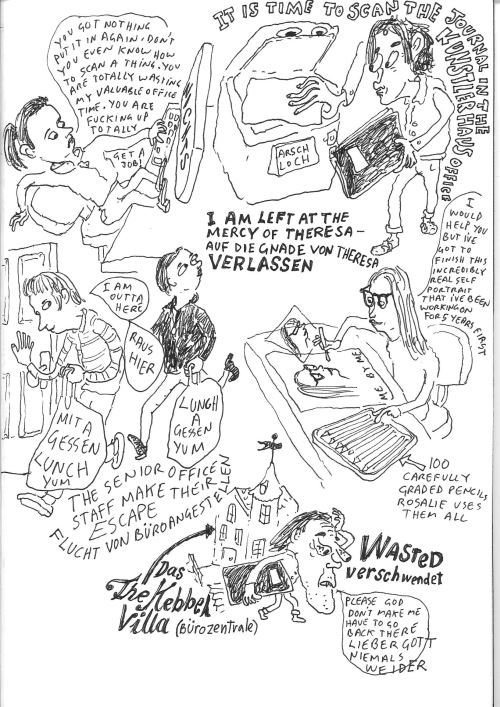 IT IS TIME TO SCAN THE JOURNAL IN THE
KÜNSTLERHAUS
OFFICE
YOU GOT NOTHING
PUT IT IN AGAIN. DON'T
YOU EVEN KNOW HOW
TO SCAN A THING. YOU
ARE TOTALLY WASTING
MY VALUABLE OFFICE
TIME. YOU ARE
FUCKING UP
TOTALLY
GET A
JOB!
ARSCH
LOCH
I AM LEFT AT THE
MERCY OF THERESA -
AUF DIE GNADE VON THERESA
VERLASSEN
I
WOULD
HELP YOU
BUT I'VE
GOT TO
FINISH THIS
INCREDIBLY
REAL SELF
PORTRAIT
THAT I'VE BEEN
WORKING ON
FOR 5 YEARS FIRST
I AM
OUTTA
HERE
RAUS
HIER
MIT A
GESSEN
LUNCH
YUM
LUNGH
A
GESSEN
YUM
ME BY ME
100
CAREFULLY
GRADED PENCILS
ROSALIE USES
THEM ALL
THE SENIOR OFFICE
STAFF MAKE THEIR
ESCAPE
FLUCHT VON BÜROANGESTELLEN
Das
The Kebbel
Villa (Bürozentrale)
WASTED
verschwendet
PLEASE GOD
DON'T MAKE ME
HAVE TO GO
BACK THERE
LIEBER GOTT
NIEMALS
WEIDER